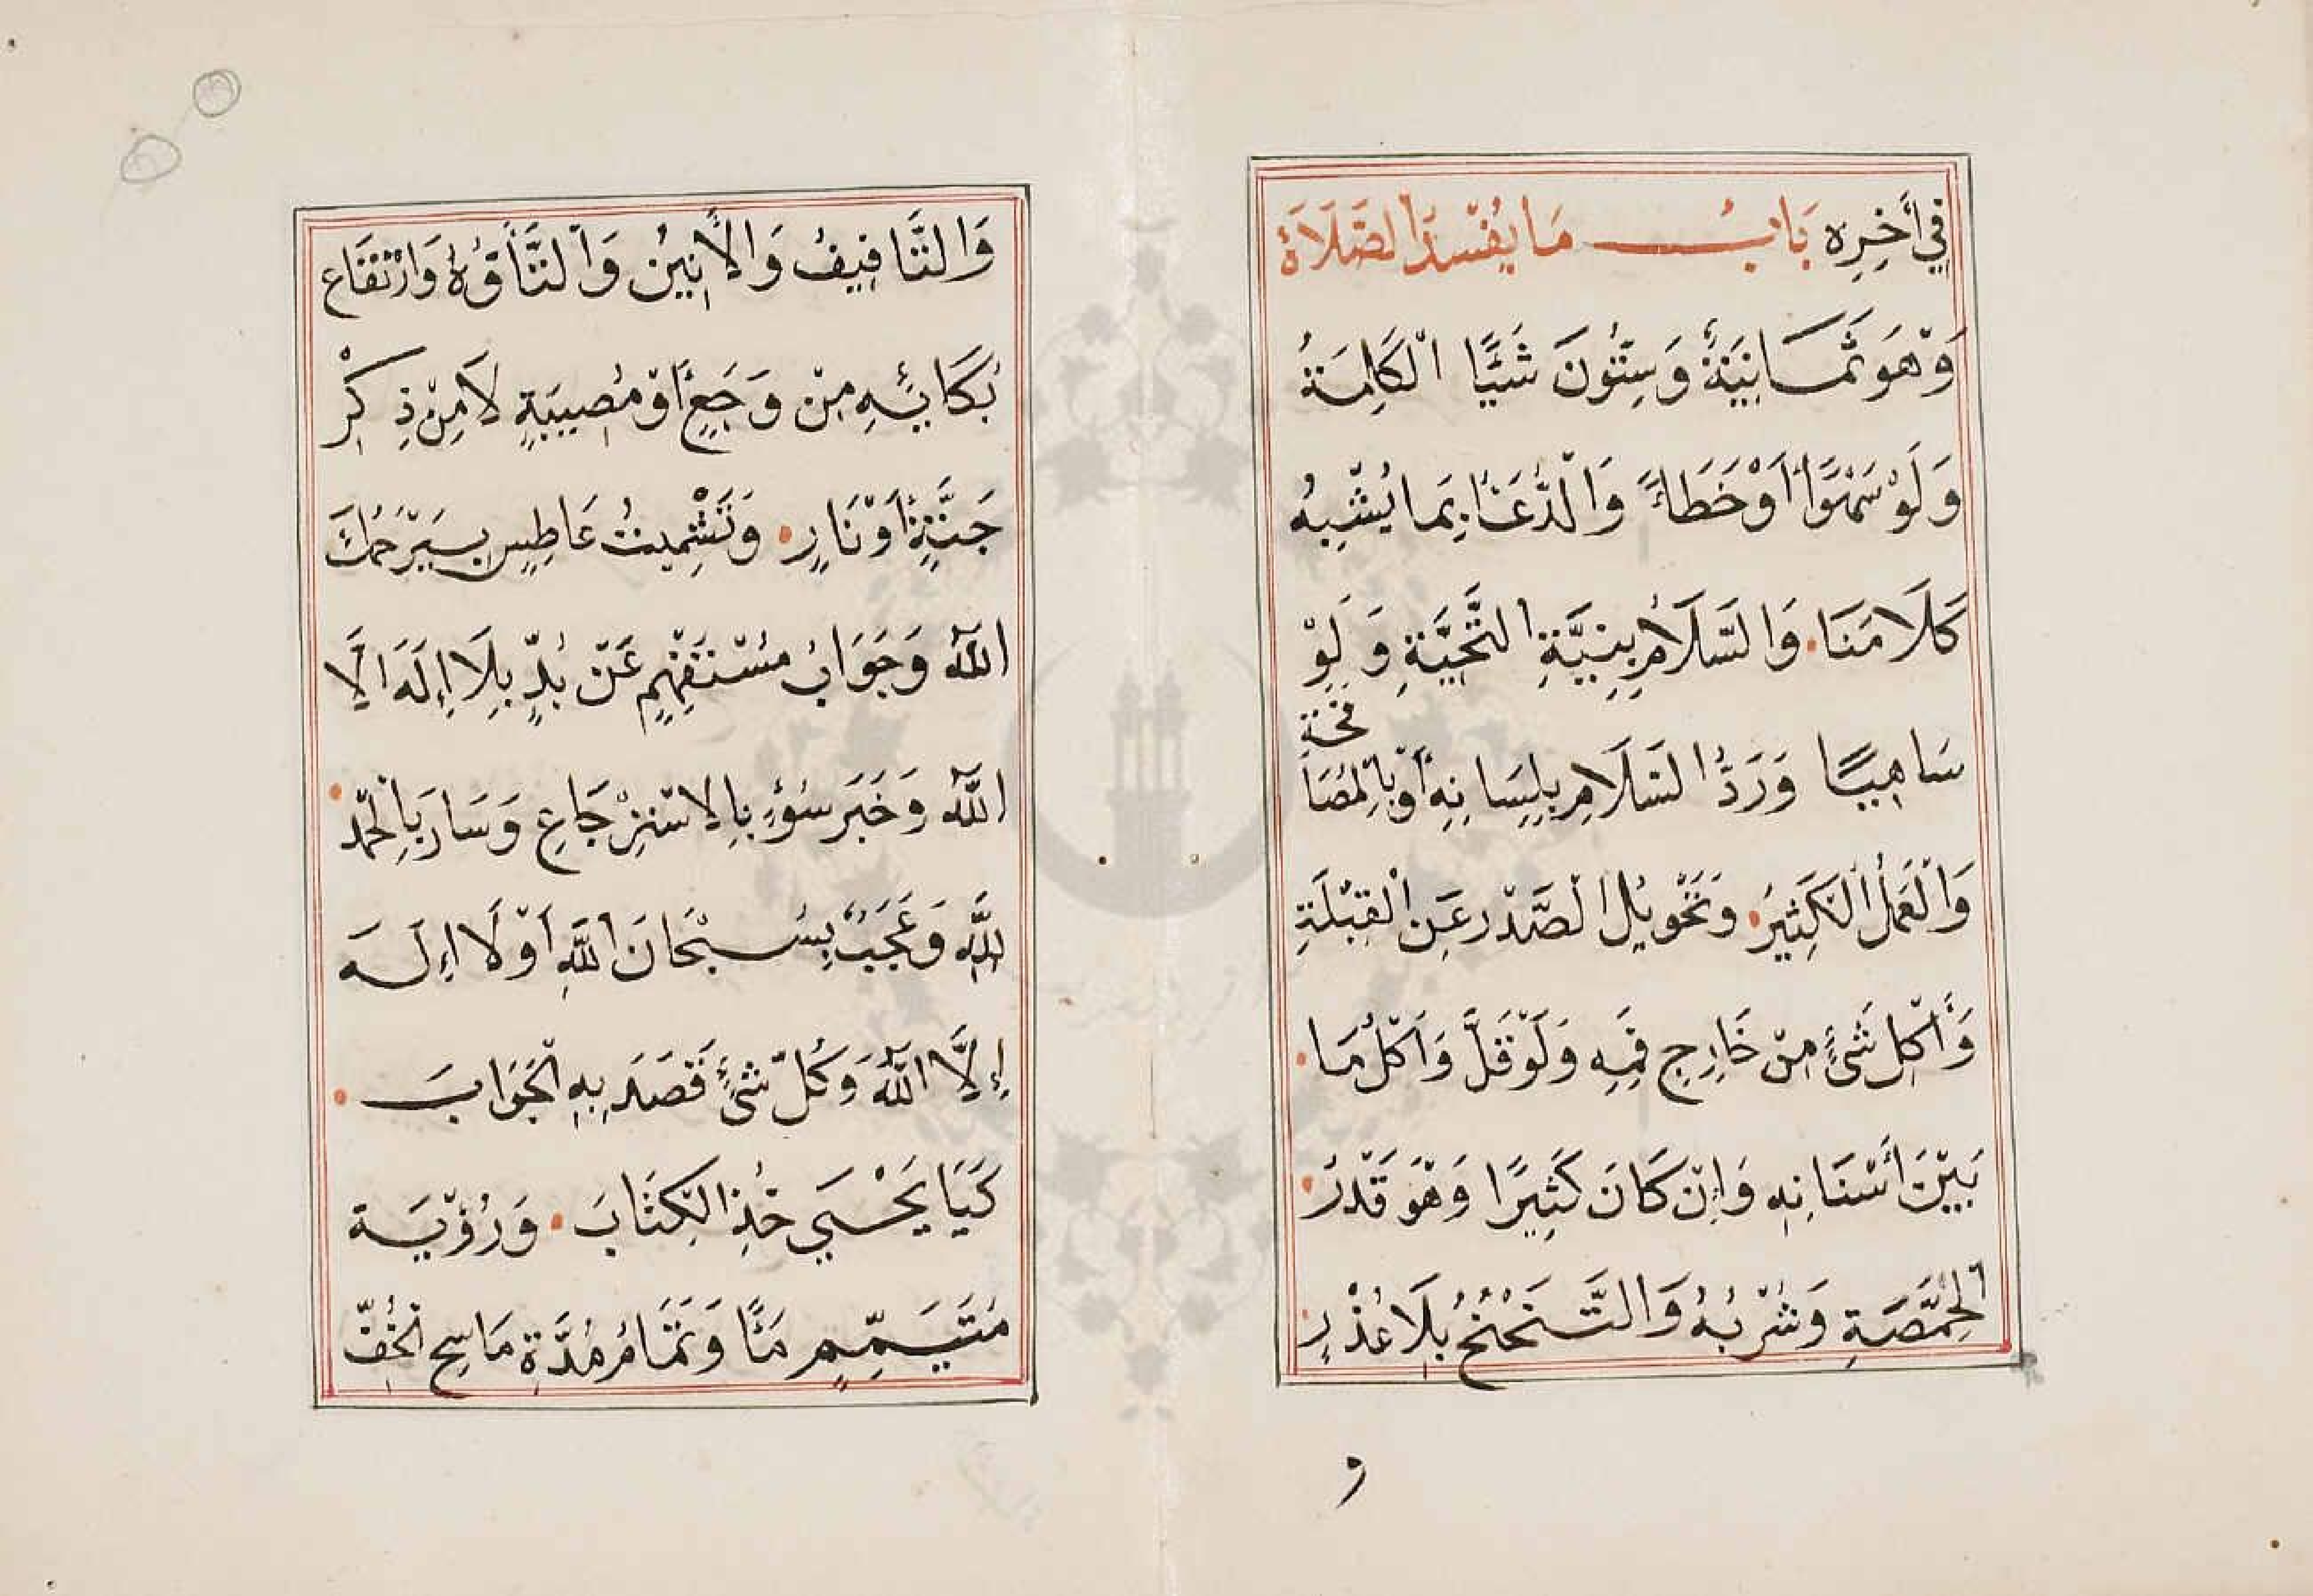 فِي أَخِرِهِ بَابُ مَا يُفْسِدُ الصَّلَاةَ
وَهُوَ ثَمَانِيَةٌ وَسِتُّونَ شَيًّا الْكَلِمَةُ
وَلَوْ سَهْوًا أَوْ خَطَاءً وَالدُّعَآ بِمَا يُشْبِهُ
كَلَامَنَا وَالسَّلَامُ بِنِيَّةِ التَّحِيَّةِ وَلَوْ
سَاهِيًا وَرَدُّ السَّلَامِ بِلِسَانِهِ أَوْ بِالْمُصَافَحَةِ
وَالْعَمَلُ الْكَثِيرُ وَتَحْوِيلُ الصَّدْرِ عَنِ الْقِبْلَةِ
وَأَكْلُ شَيْءٍ مِنْ خَارِجِ فَمِهِ وَلَوْ قَلَّ وَأَكْلُ مَا
بَيْنَ أَسْنَانِهِ وَإِنْ كَانَ كَثِيرًا وَهُوَ قَدْرُ
الْحِمَّصَةِ وَشُرْبُهُ وَالتَّنَحْنُحُ بِلَا عُذْرٍ
و
وَالتَّافِيفُ وَالْأَنِينُ وَالتَّأَوُّهُ وَارْتِفَاع
بُكَائِهِ مِنْ وَجَعٍ أَوْ مُصِيبَةٍ لَا مِنْ ذِكْرِ
جَنَّةٍ أَوْ نَارٍ وَتَشْمِيتُ عَاطِسٍ بِيَرْحَمُكَ
اللّٰهُ وَجَوَابُ مُسْتَفْهِمٍ عَنْ نِدٍّ بِلَا إِلَهَ الَّا
اللّٰهُ وَخَبَرِ سُوْءٍ بِالاسْتِرْجَاعِ وَسَارٍّ بِالْحَمْد
لِلَّهِ وَعَجَبٍ بِسُبْحَانَ اللَّهِ أَوْ لَا إِلَهَ
إِلَّا اللّٰهُ وَكُلُّ شَيْءٍ قَصَدَ بِهِ الْجَوَابَ
كَيَا يَحْيَي خُذِ الْكِتَابَ وَرُؤْيَة
مُتَيَمِّمٍ مَآءً وَتَمَامُ مُدَّةِ مَاسِحِ الْخُفِّ